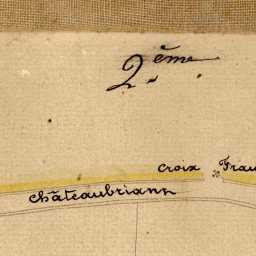 2ème
Croix Frau
Châteaubriann